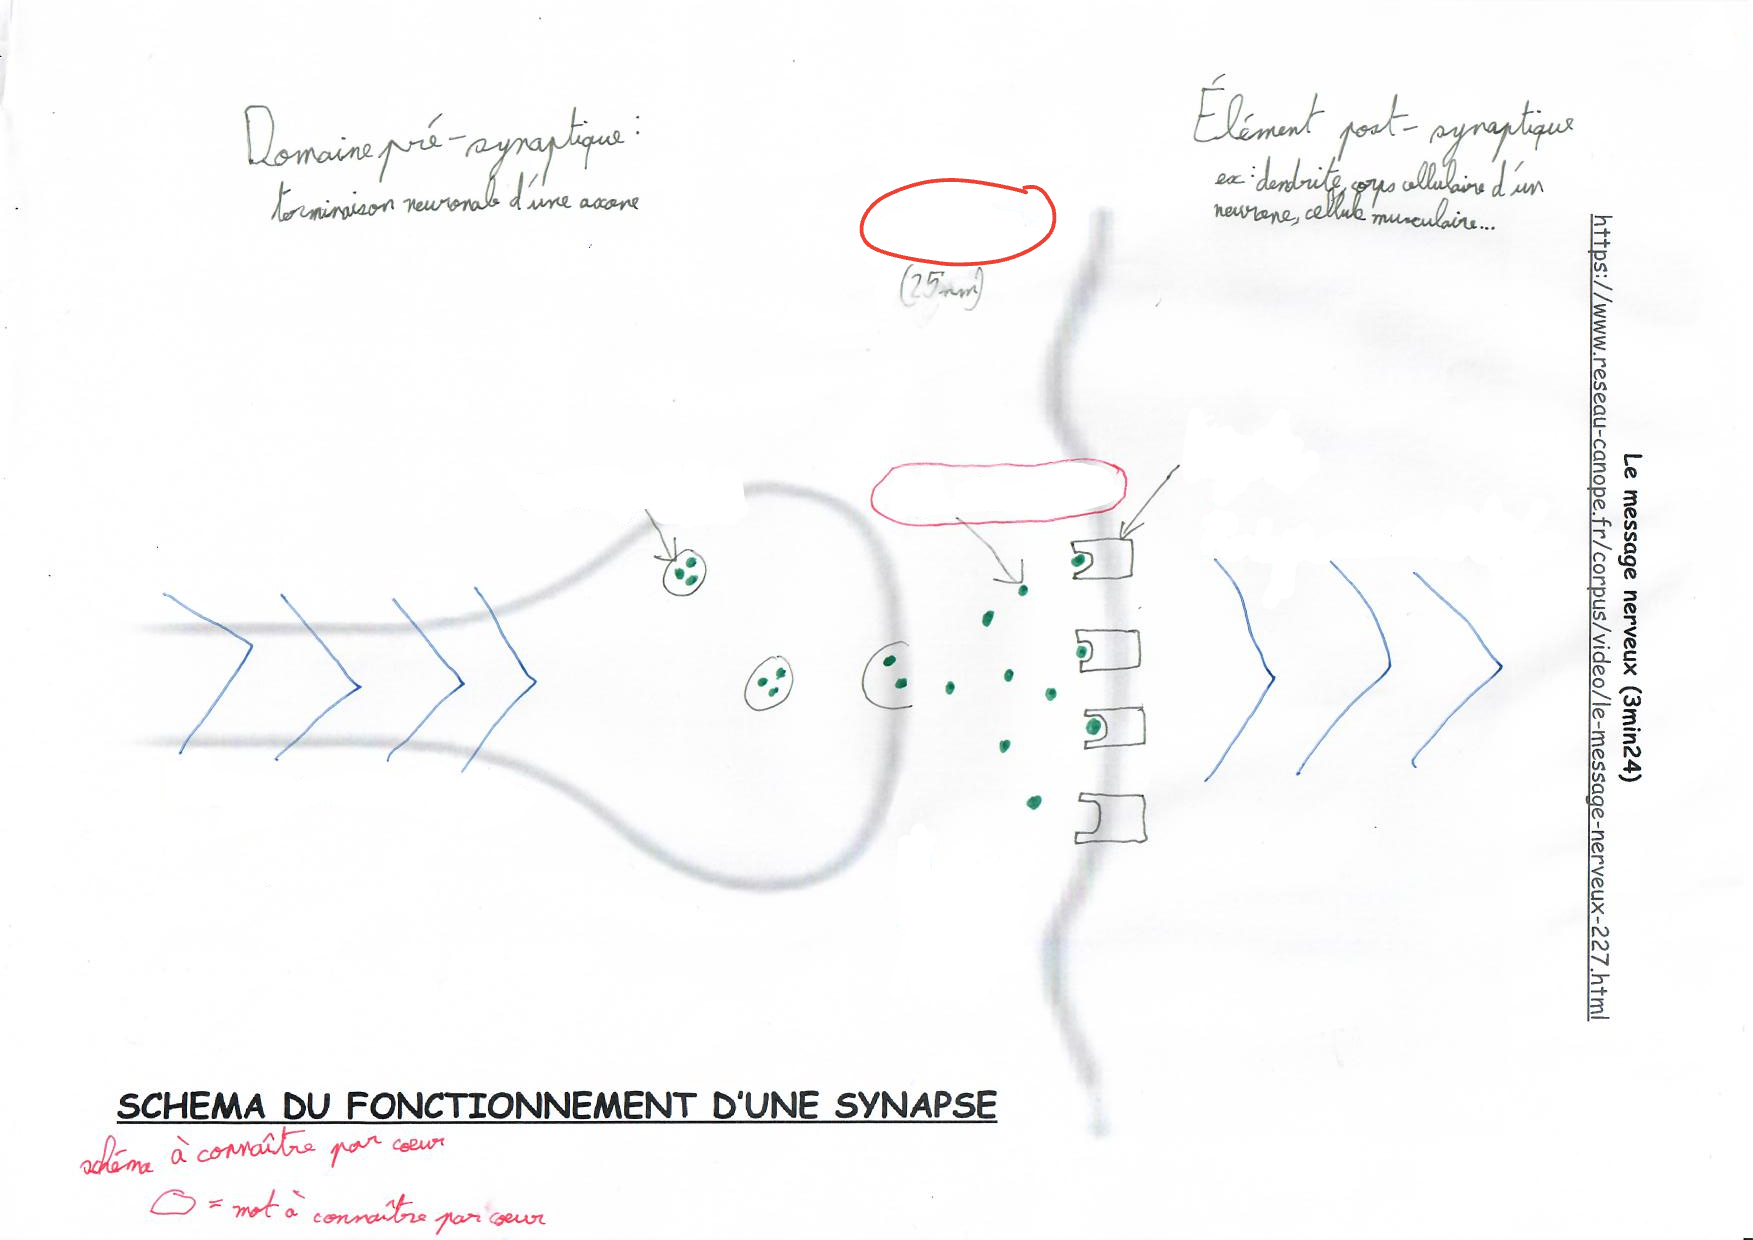 Domaine pré-synaptique :
terminaison neuronale d'une axone
Élément post-synaptique
ex : dendrite, corps cellulaire d'un
neurone, cellule musculaire...
(25nm)
Le message nerveux (3min24)
https://www.reseau-canope.fr/corpus/video/le-message-nerveux-227.html
SCHEMA DU FONCTIONNEMENT D'UNE SYNAPSE
schéma à connaître par coeur
= mot à connaître par coeur